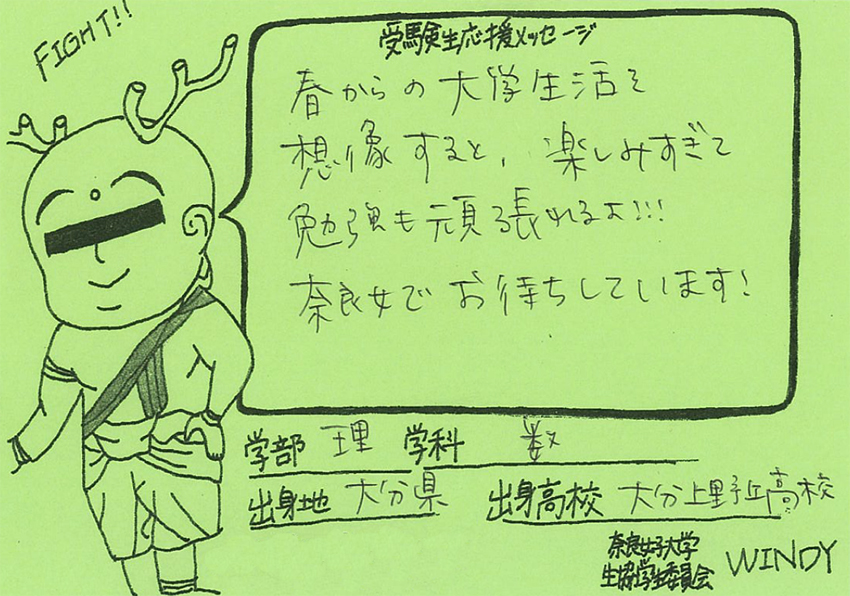 FIGHT!!
受験生応援メッセージ
春からの大学生活を
想像すると、楽しみすぎて
勉強も頑張れるよ!!!
奈良女でお待ちしています!
学部 理 学科 数
出身地 大分県 出身高校 大分上野丘高校
奈良女子大学
生協学生委員会 WINDY